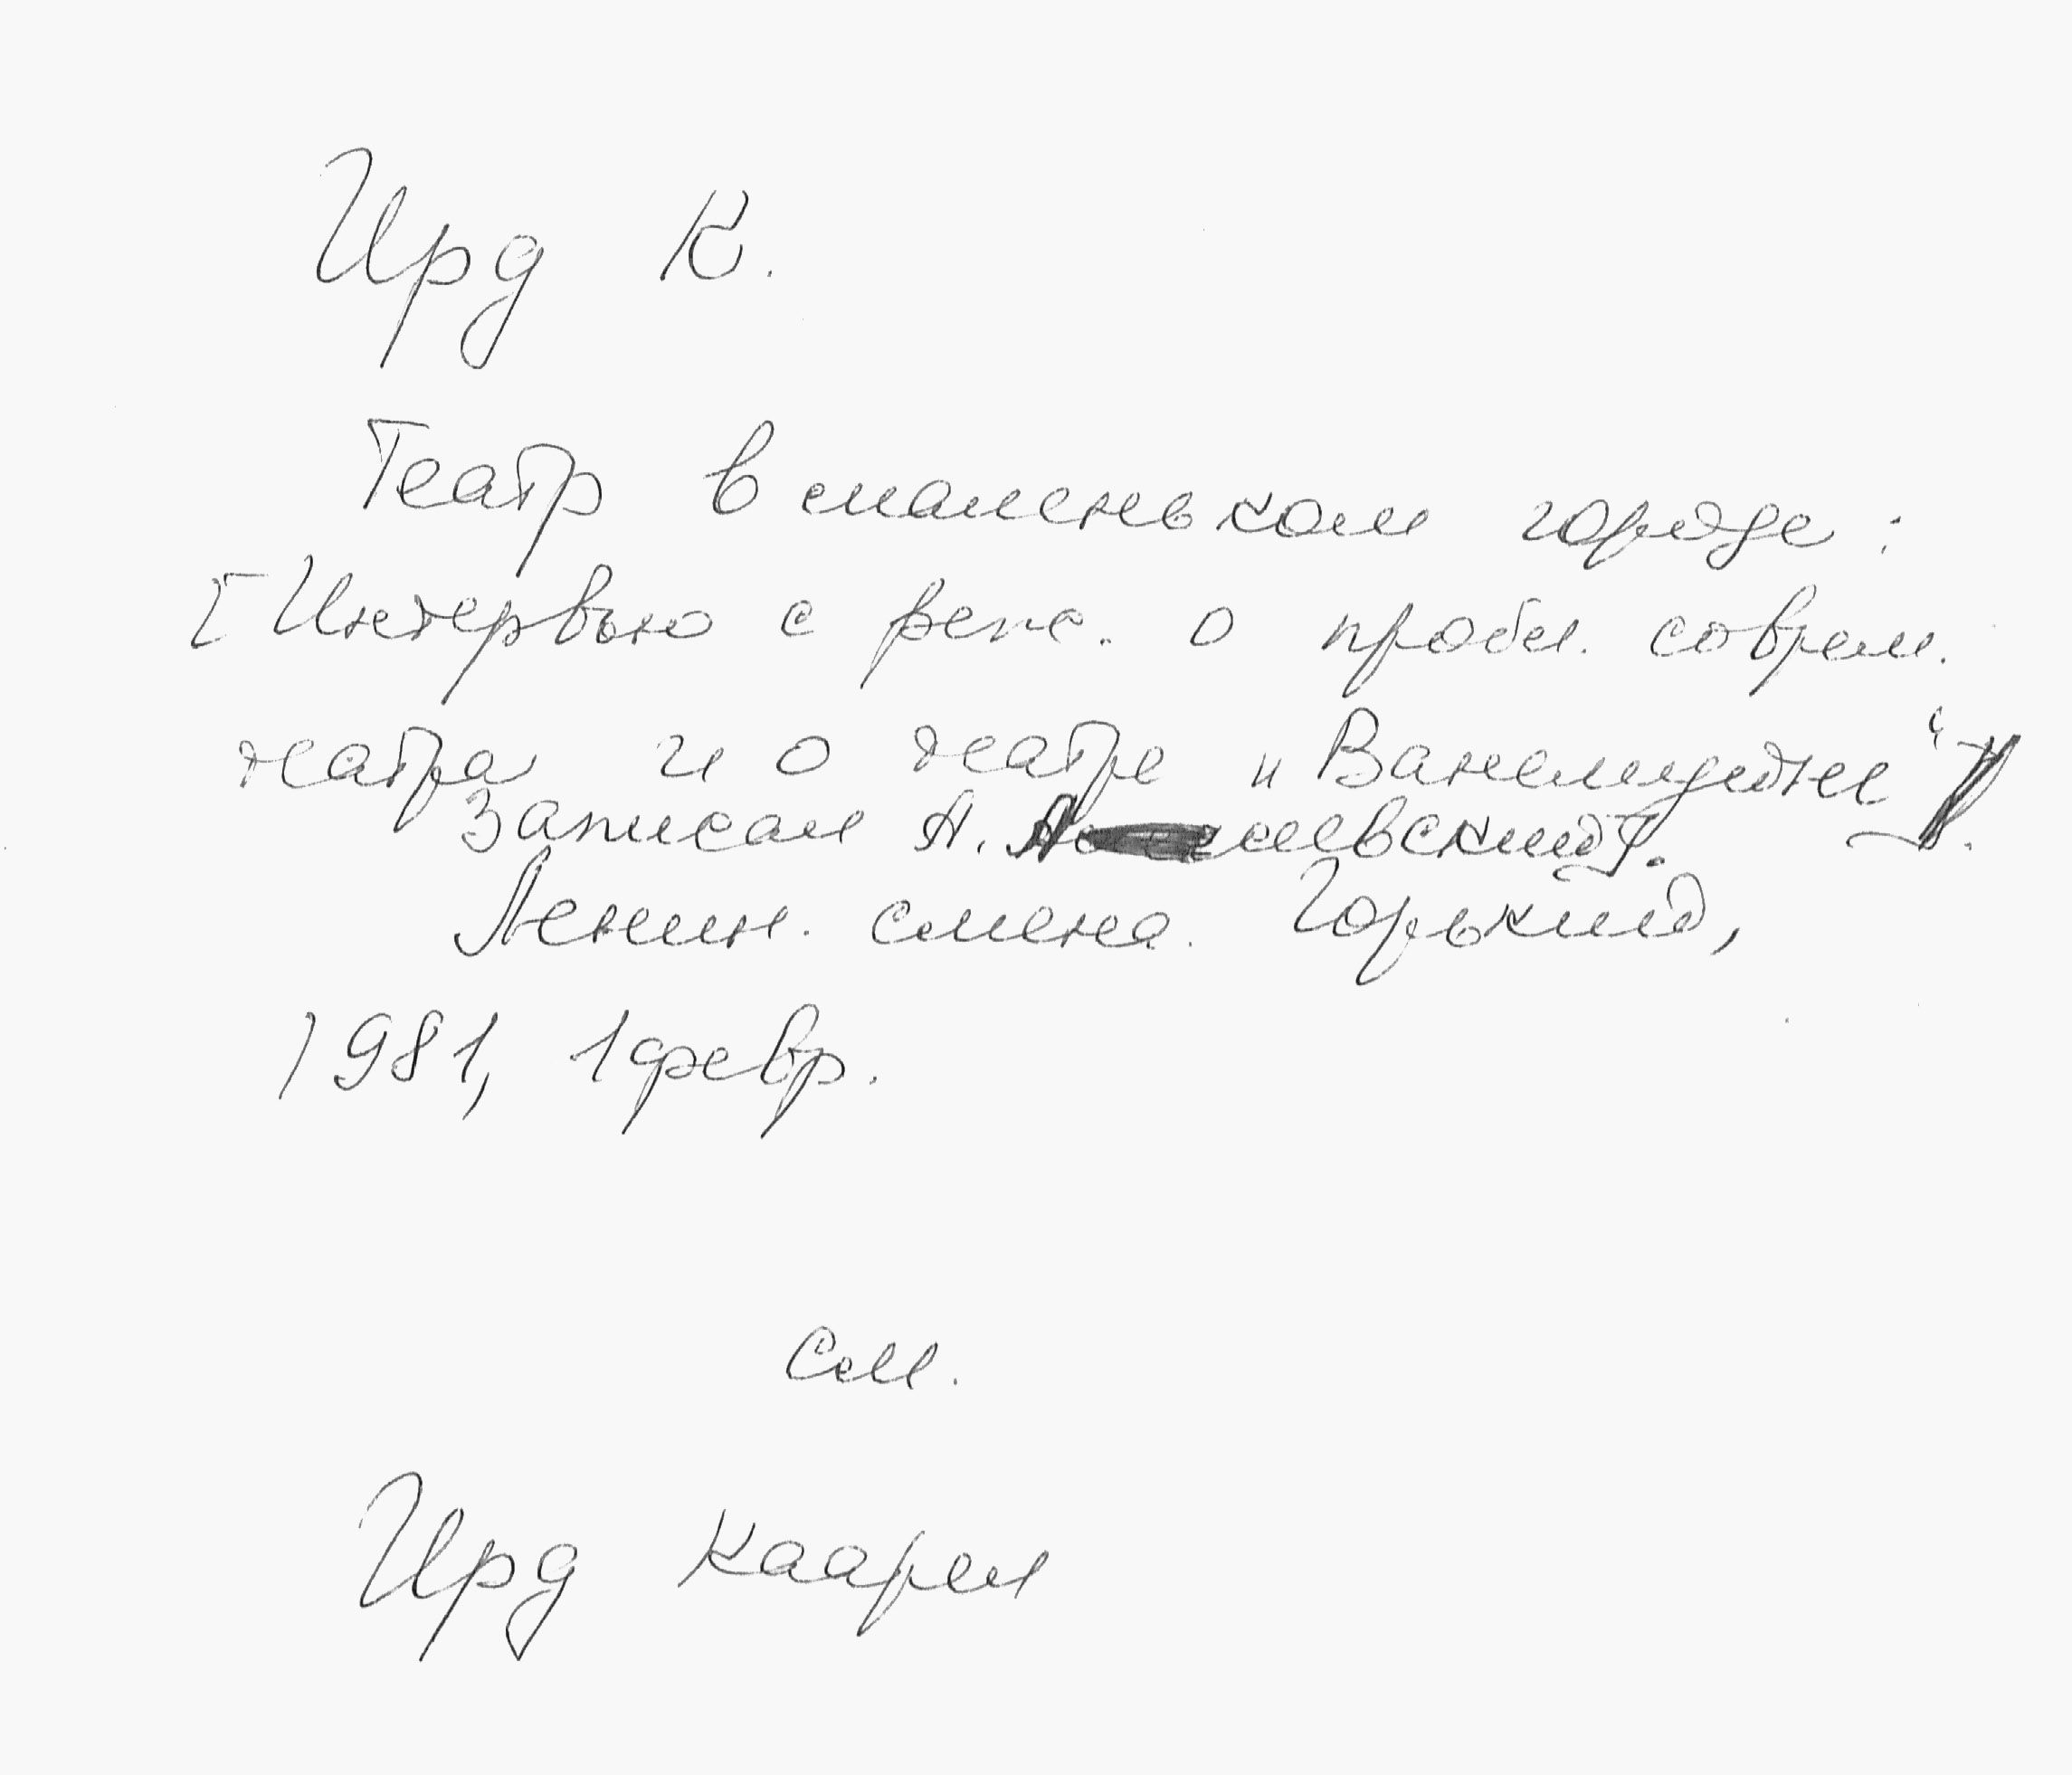 Ирд К.
Театр в маленьком городе:
[Интервью с реж. о пробл. соврем.
театра и о театре „Ванемуйне“
Записал А.
Ленин. смена. Горький,
1981, 1 февр.
См.
Ирд Каарел